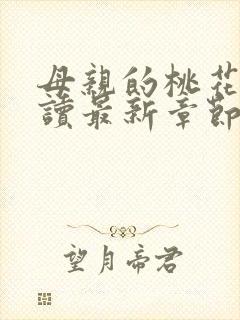 母親的桃花
讀最新章節
望月帝君